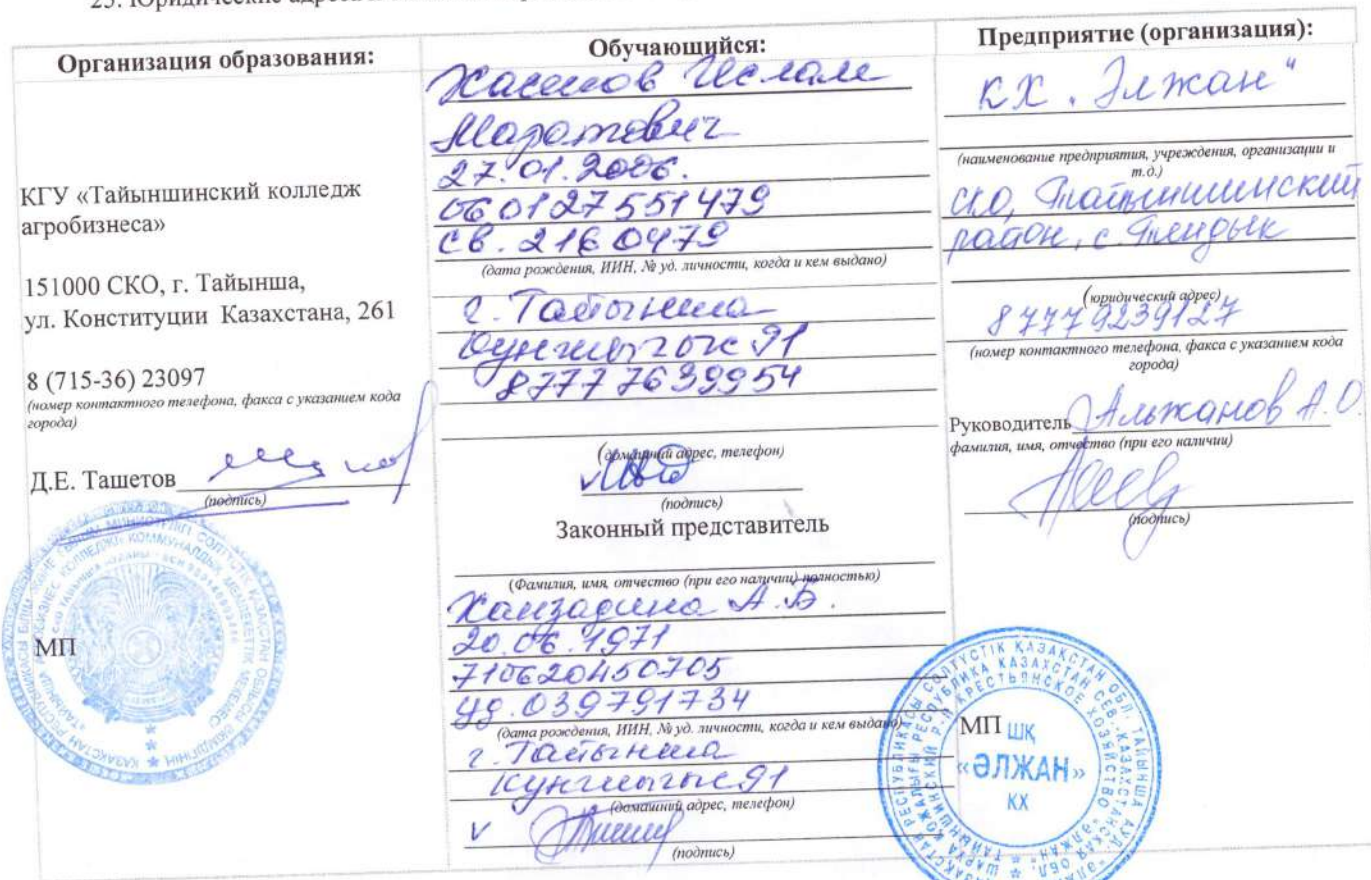 25. Юридические адреса
Организация образования:
КГУ «Тайыншинский колледж
агробизнеса»
151000 СКО, г. Тайынша,
ул. Конституции Казахстана, 261
8 (715-36) 23097
(номер контактного телефона, факса с указанием кода
города)
Д.Е. Ташетов
(подпись)
МП
Обучающийся:
Хасенов Ислам
Маратович
27.01.2006.
060127551479
св. 2160479
(дата рождения, ИИН, № уд. личности, когда и кем выдано)
г. Тайынша
91
87777639954
(домашний адрес, телефон)
(подпись)
Законный представитель
(Фамилия, имя, отчество (при его наличии) полностью)
Ханзадина А.Б.
20.06.1971
710620450705
уд. 039791734
(дата рождения, ИИН, № уд. личности, когда и кем выдано)
г. Тайынша
Кунгшыгыс 91
(домашний адрес, телефон)
v
(подпись)
Предприятие (организация):
КХ "Элжан"
(наименование предприятия, учреждения, организации и
т.д.)
СКО, Тайыншинский
район, с. Тендык
(юридический адрес)
87779239127
(номер контактного телефона, факса с указанием кода
города)
Руководитель Альжанов А.О.
фамилия, имя, отчество (при его наличии)
(подпись)
МП
ШҚ
«ӘЛЖАН»
КХ